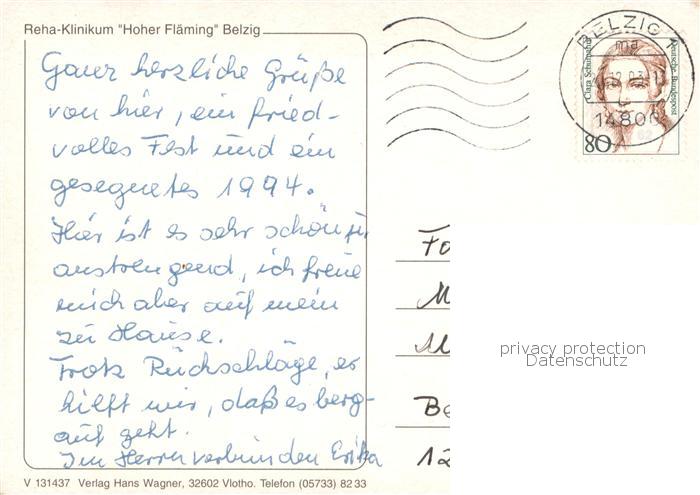 Reha-Klinikum "Hoher Fläming" Belzig
Ganz herzliche Grüße
von hier, ein fried-
volles Fest und ein
gesegnetes 1994.
Hier ist es sehr schön
anstrengend, ich freue
mich aber auf mein
zu Hause.
Trotz Rückschläge, es
hilft mir, daß es berg-
auf geht.
Im Herrn verbunden Erika
V 131437 Verlag Hans Wagner, 32602 Vlotho. Telefon (05733) 82 33
BELZIG 1
ma
14800
Clara Schumann
Deutsche Bundespost
80
Fa
M
M
Be
12
privacy protection
Datenschutz